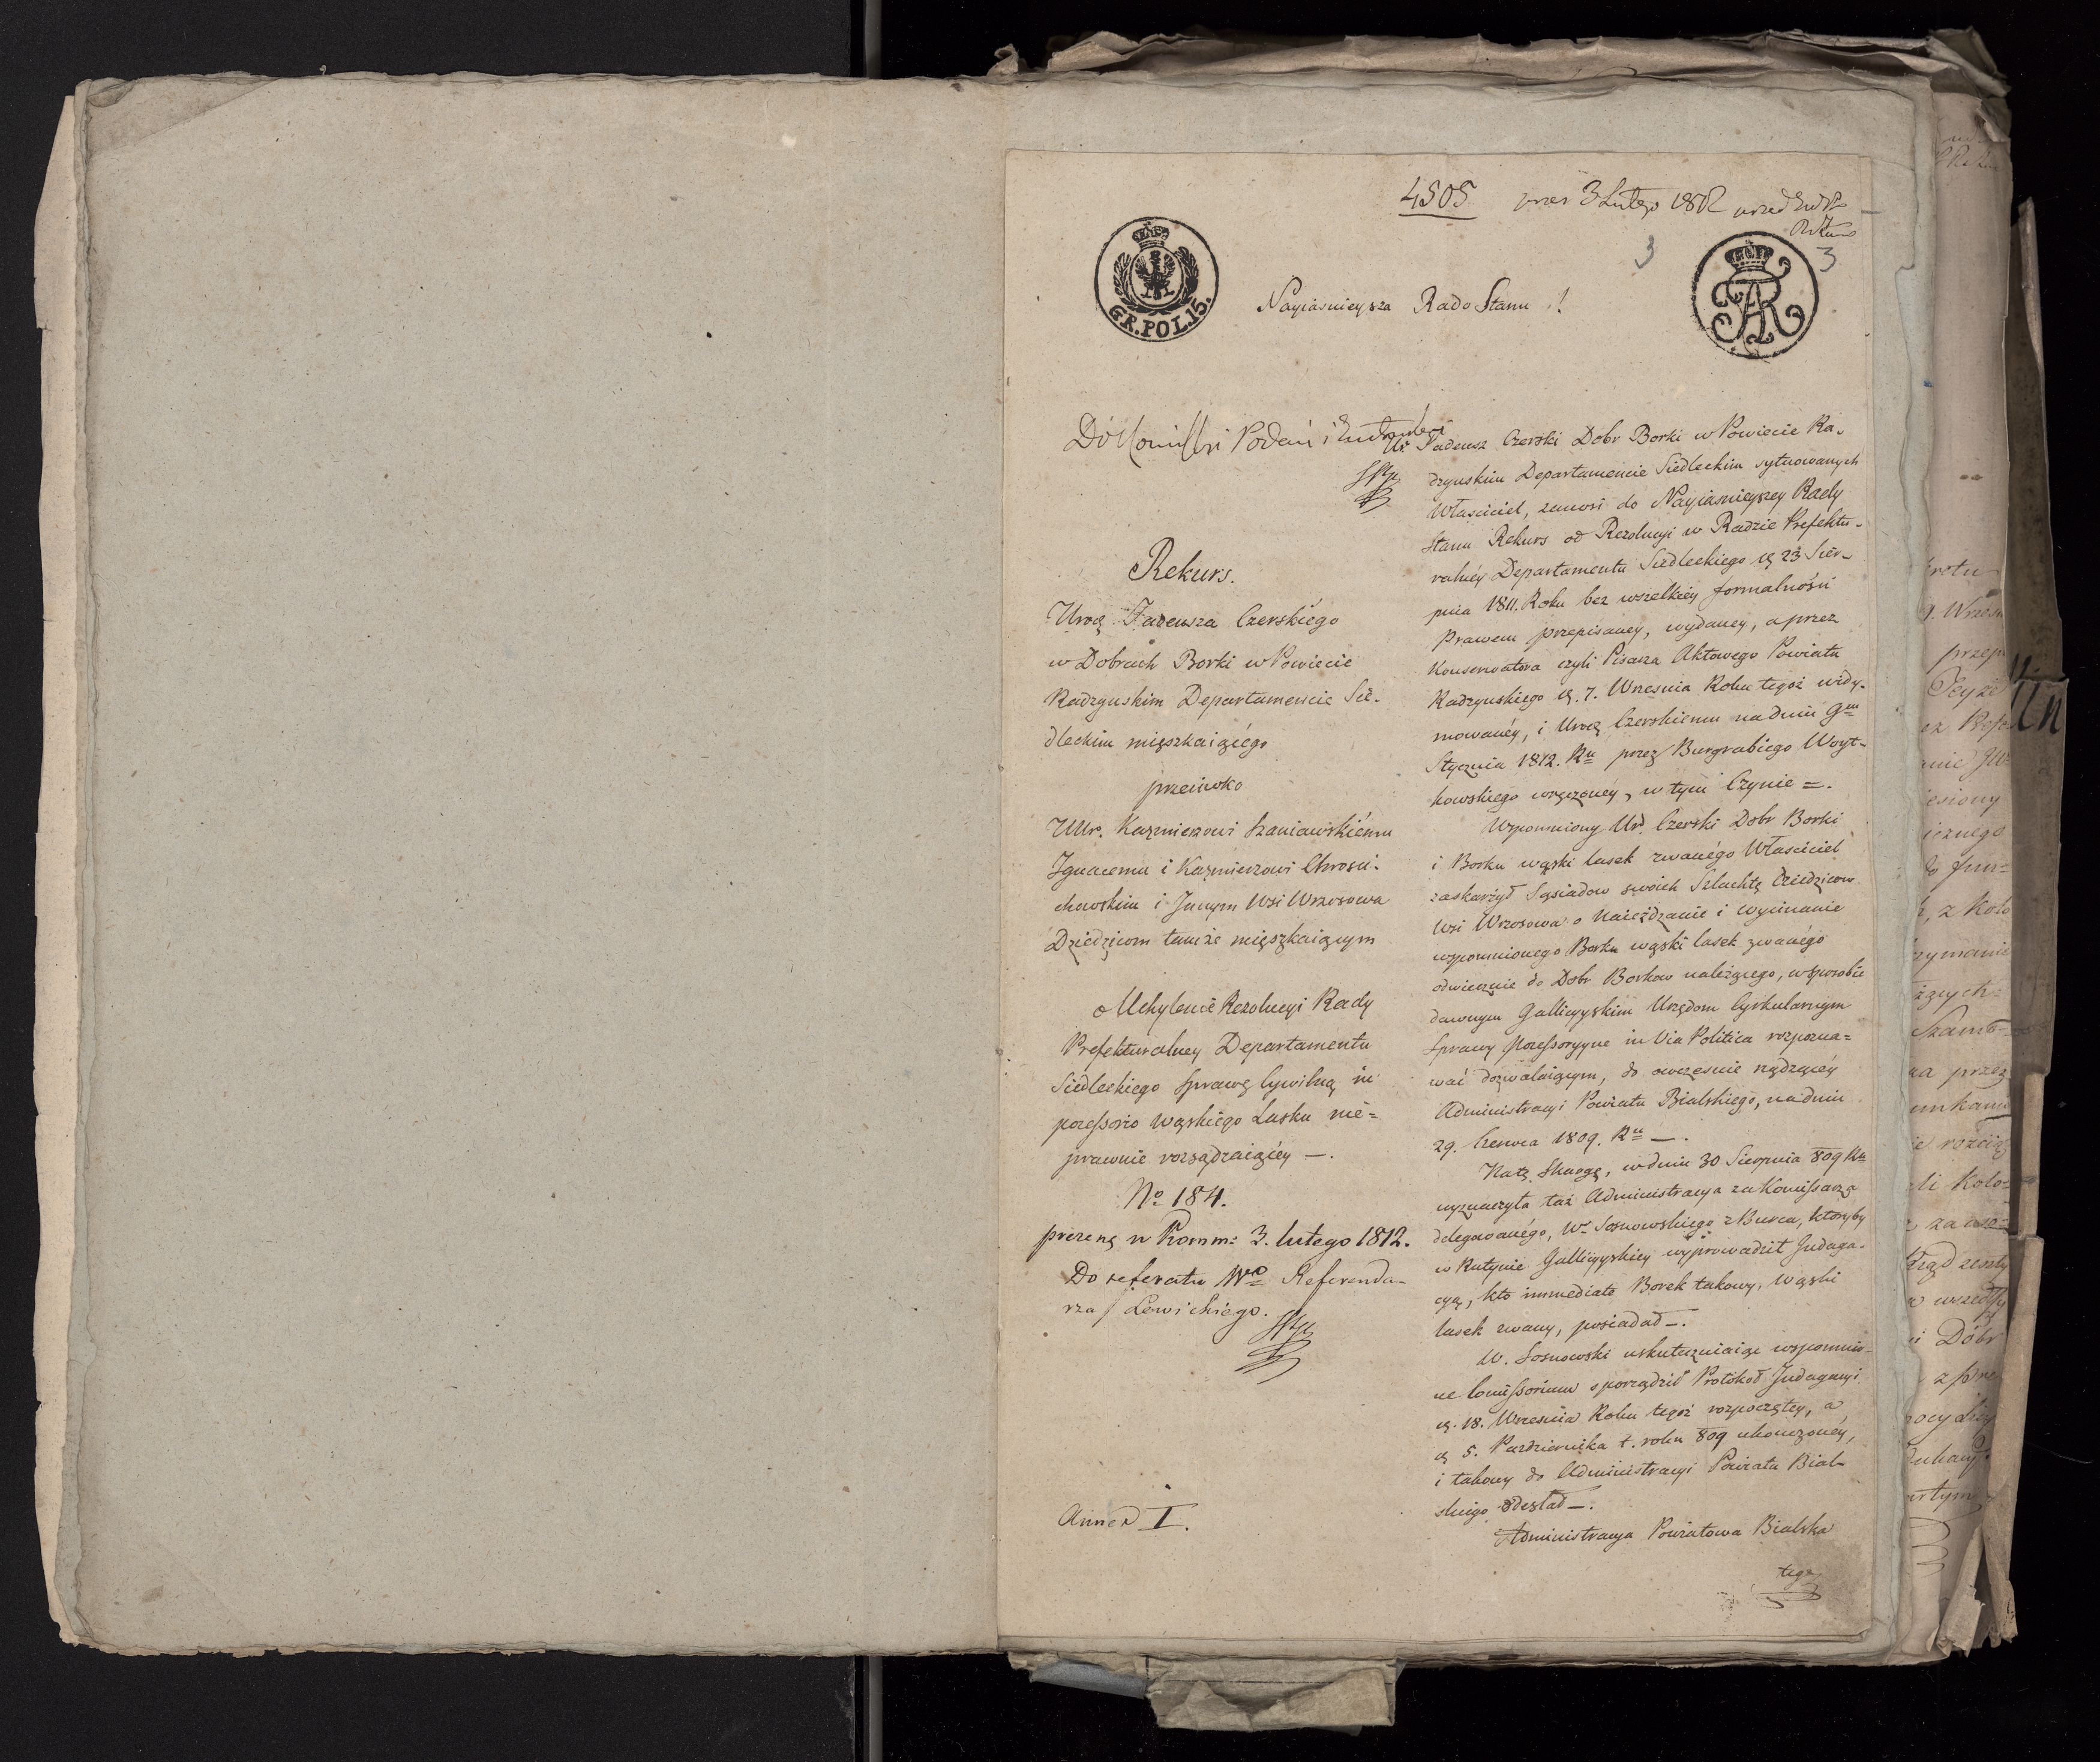 4505 prez 3 Lutego 1812
3 3
GR. POL. 15.
Nayiasnieysza Rado Stanu !
Do Komissyi Podań i
Rekurs.
Uroḑ Tadeusza Czerskiégo
w Dobrach Borki w Powiecie
Radzynskim Departamencie Sie-
dleckim mięszkaiącégo
przeciwko
UUr. Kaźmierzowi Szaniawskiému
Ignacemu i Kaźmierzowi Chrosci-
chowskim i Innym Wsi Wrzosowa
Dziedzicom tamże mięszkaiącym
o Uchylenié Rezolucyi Rady
Prefekturalney Departamentu
Siedleckiego Sprawę Cywilną in
possessorio wąskiégo Lasku nie=
prawnie rozsądzaiącéy —.
No 184.
prezent: w Komm: 3. lutego 1812.
Do referatu Wo Referenda-
rza Lewickiego.
Annex I.
Ur. Tadeusz Czerski Dobr Borki w Powiecie Ra-
dzynskim Departamencie Siedleckim sytuowanych
Właściciel, zanosi do Nayiasnieyszey Rady
Stanu Rekurs od Rezolucyi w Radzie Prefektu-
ralnéy Departamentu Siedleckiego ḑ 23 Sier-
pnia 1811. Roku bez wszelkiéy formalności
Prawem przepisaney, wydaney, a przez
Konserwatora czyli Pisarza Aktowego Powiatu
Radzynskiego ḑ. 7. Wrzesnia Roku tegoż widy-
mowanéy, i Uroḑ Czerskiemu na dniu 9m
Stycznia 1812. Ru przez Burgrabiego Woyt-
kowskiego wręczonéy, w tym Czynie =.
Wspomniony Ur. Czerski Dobr Borki
i Borku wąski lasek zwanégo Właściciel
zaskarżył Sąsiadow swoich Szlachtę Dziedzicow
Wsi Wrzosowa o Naieżdzanie i wycinanie
wspomnionego Borku wąski lasek zwanégo
odwiecznie do Dobr Borkow należącego, w sposobie
dawnym Gallicyyskim Urzędom Cyrkularnym
Sprawy Possessoryyne in Via Politica rozpozna=
wać dozwalaiącym, do owczesnie rządzącéy
Administracyi Powiatu Bialskiego, na dniu
29. Czerwca 1809. Ru —.
Na tę Skargę, w dniu 30 Sierpnia 809 Ru
wyznaczyła taż Administracya za Komissarza
delegowanégo, Wo Sosnowskiégo z Burca, ktoryby
w Rutynie Gallicyyskiéy wyprowadził Indaga-
cyą, kto immediate Borek takowy, wąski
lasek zwany, posiadał —.
W. Sosnowski uskuteczniaiąc wspomnio-
ne Comissorium sporządził Protokoł Indagacyi
ḑ. 18. Wrzesnia Roku tegoż rozpoczętey, a
ḑ 5. Pazdziernika t. roku 809 ukonczonéy,
i takowy do Administracyi Powiatu Bial-
skiego odesłał —.
Administracya Powiatowa Bialska
tego